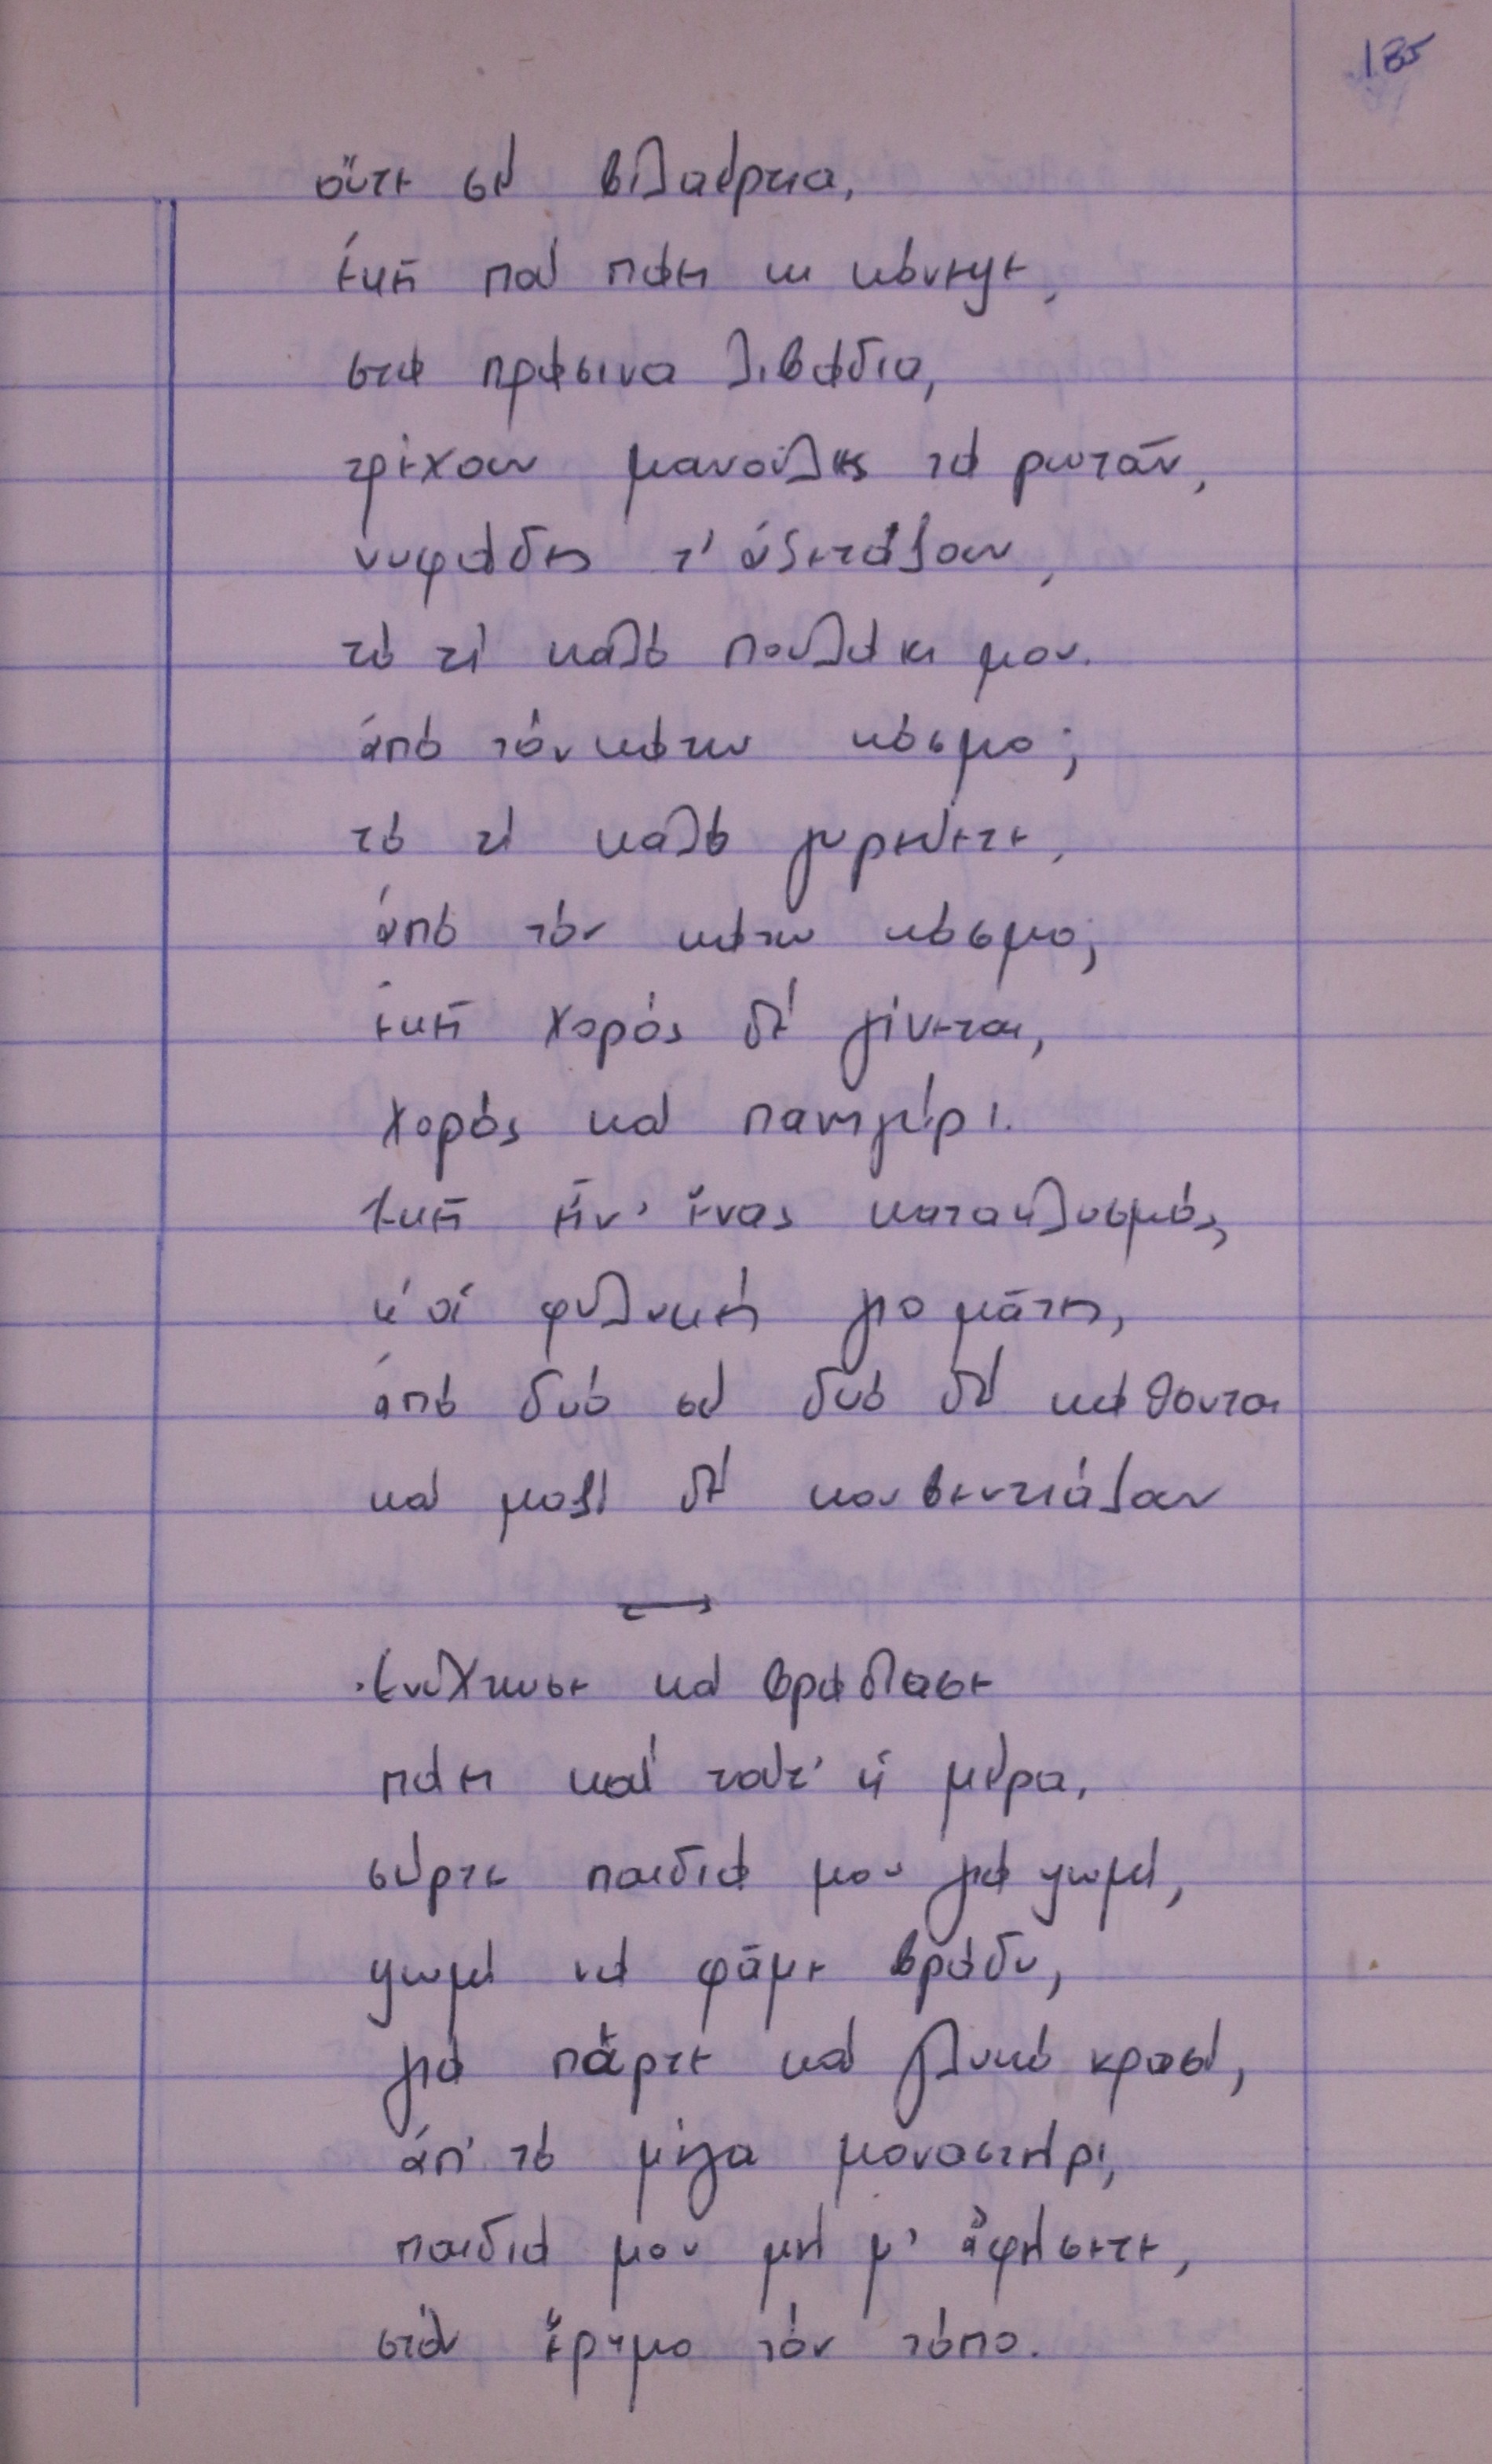 185
οὔτε σέ βιλαέρτια,
ἐκεῖ πού πάει κι κόνεψε,
στά πράσινα λιβάδια,
τρέχουν μανοῦλες τά ρωτᾶν,
νυφάδες τ' ἀξετάζουν,
τό τί καλό πουλάκι μου.
ἀπό τόν κάτω κόσμο;
τό τί καλό γυρεύετε,
ἀπό τόν κάτω κόσμο;
ἐκεῖ χορός δέ γίνεται,
χορός καί πανηγύρι.
ἐκεῖ εἶν' ἕνας κατακλυσμός,
κ' οἱ φυλακές γιομᾶτες,
ἀπό δυό σέ δυό δέ κάθονται
καί μαζί δέ κουβεντιάζουν
Ἐνύχτωσε καί βράδιασε
πάει καί τούτ' ἡ μέρα,
σύρτε παιδιά μου γιά ψωμί,
ψωμί νά φᾶμε βράδυ,
γιά πάρτε καί γλυκό κρασί,
ἀπ' τό μέγα μοναστήρι,
παιδιά μου μή μ' ἀφήσετε,
στόν ἔρημο τόν τόπο.